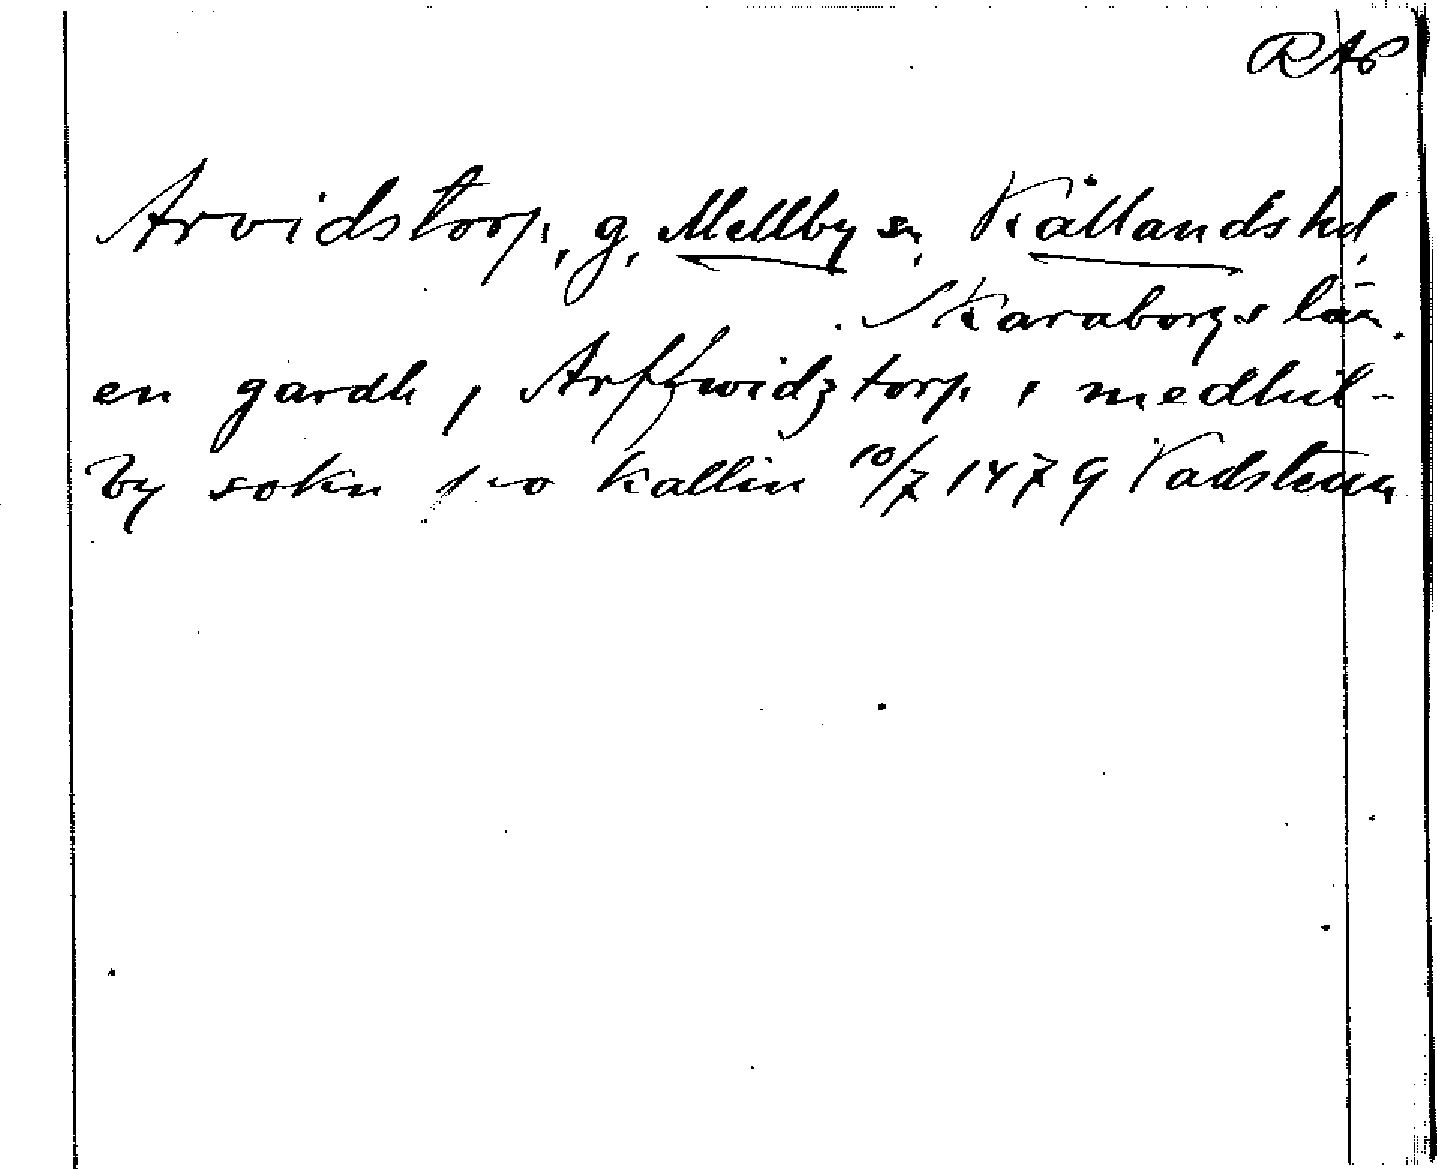 RAP
Arvidstorp, g, Mellby sn, Kållands hd,
Skaraborgs län.
en gardh, Arffwidztorp i medhil-
by sokn po kallin 10/7 1479 Vadstena